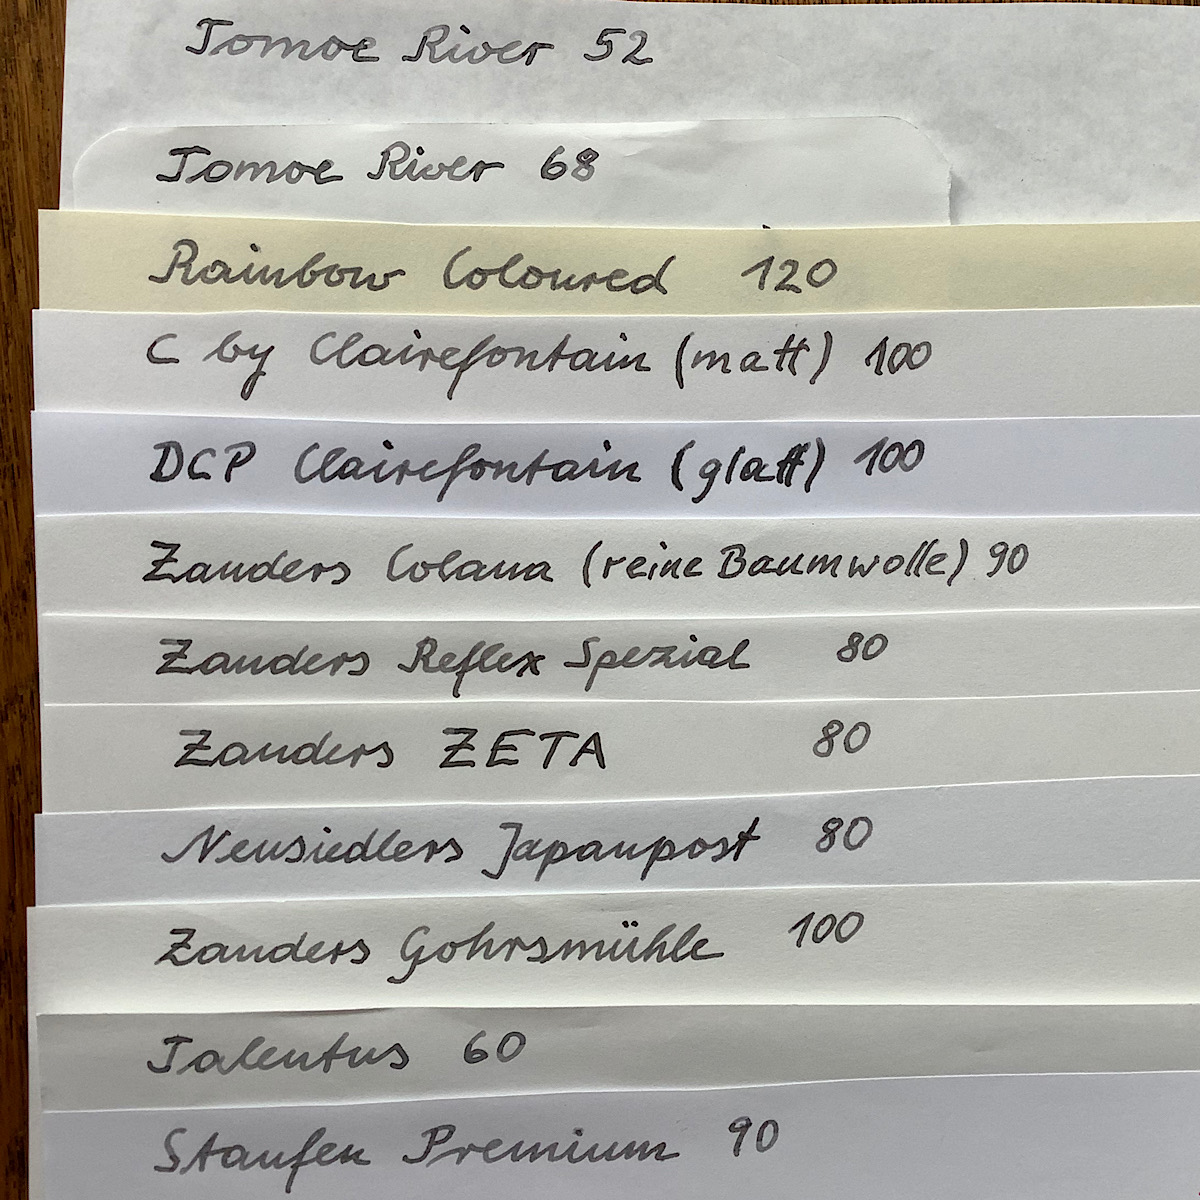 Tomoe River 52
Tomoe River 68
Rainbow Coloured 120
C by Clairefontain (matt) 100
DCP Clairefontain (glatt) 100
Zanders Colana (reine Baumwolle) 90
Zanders Reflex Spezial 80
Zanders ZETA 80
Neusiedlers Japanpost 80
Zanders Gohrsmühle 100
Talentus 60
Staufen Premium 90